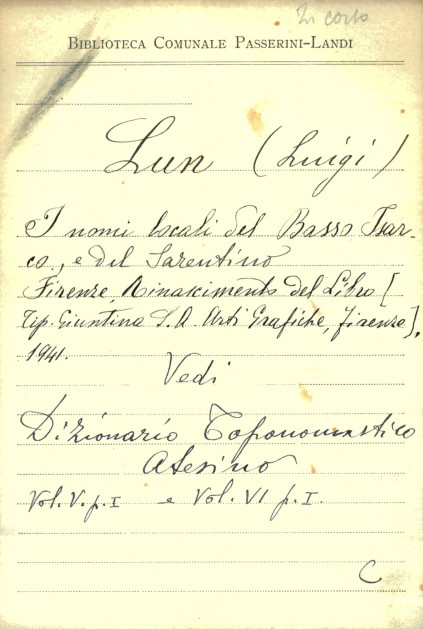 In corso
BIBLIOTECA COMUNALE PASSERINI-LANDI
Lun (Luigi)
I nomi locali del Basso Isar-
co, e del Sarentino
Firenze, Rinascimento del Libro [
Tip. Giuntina S. A. Arti Grafiche, Firenze],
1941.
Vedi
Dizionario Toponomastico
Atesino
Vol. V. p. I e Vol. VI p. I.
C